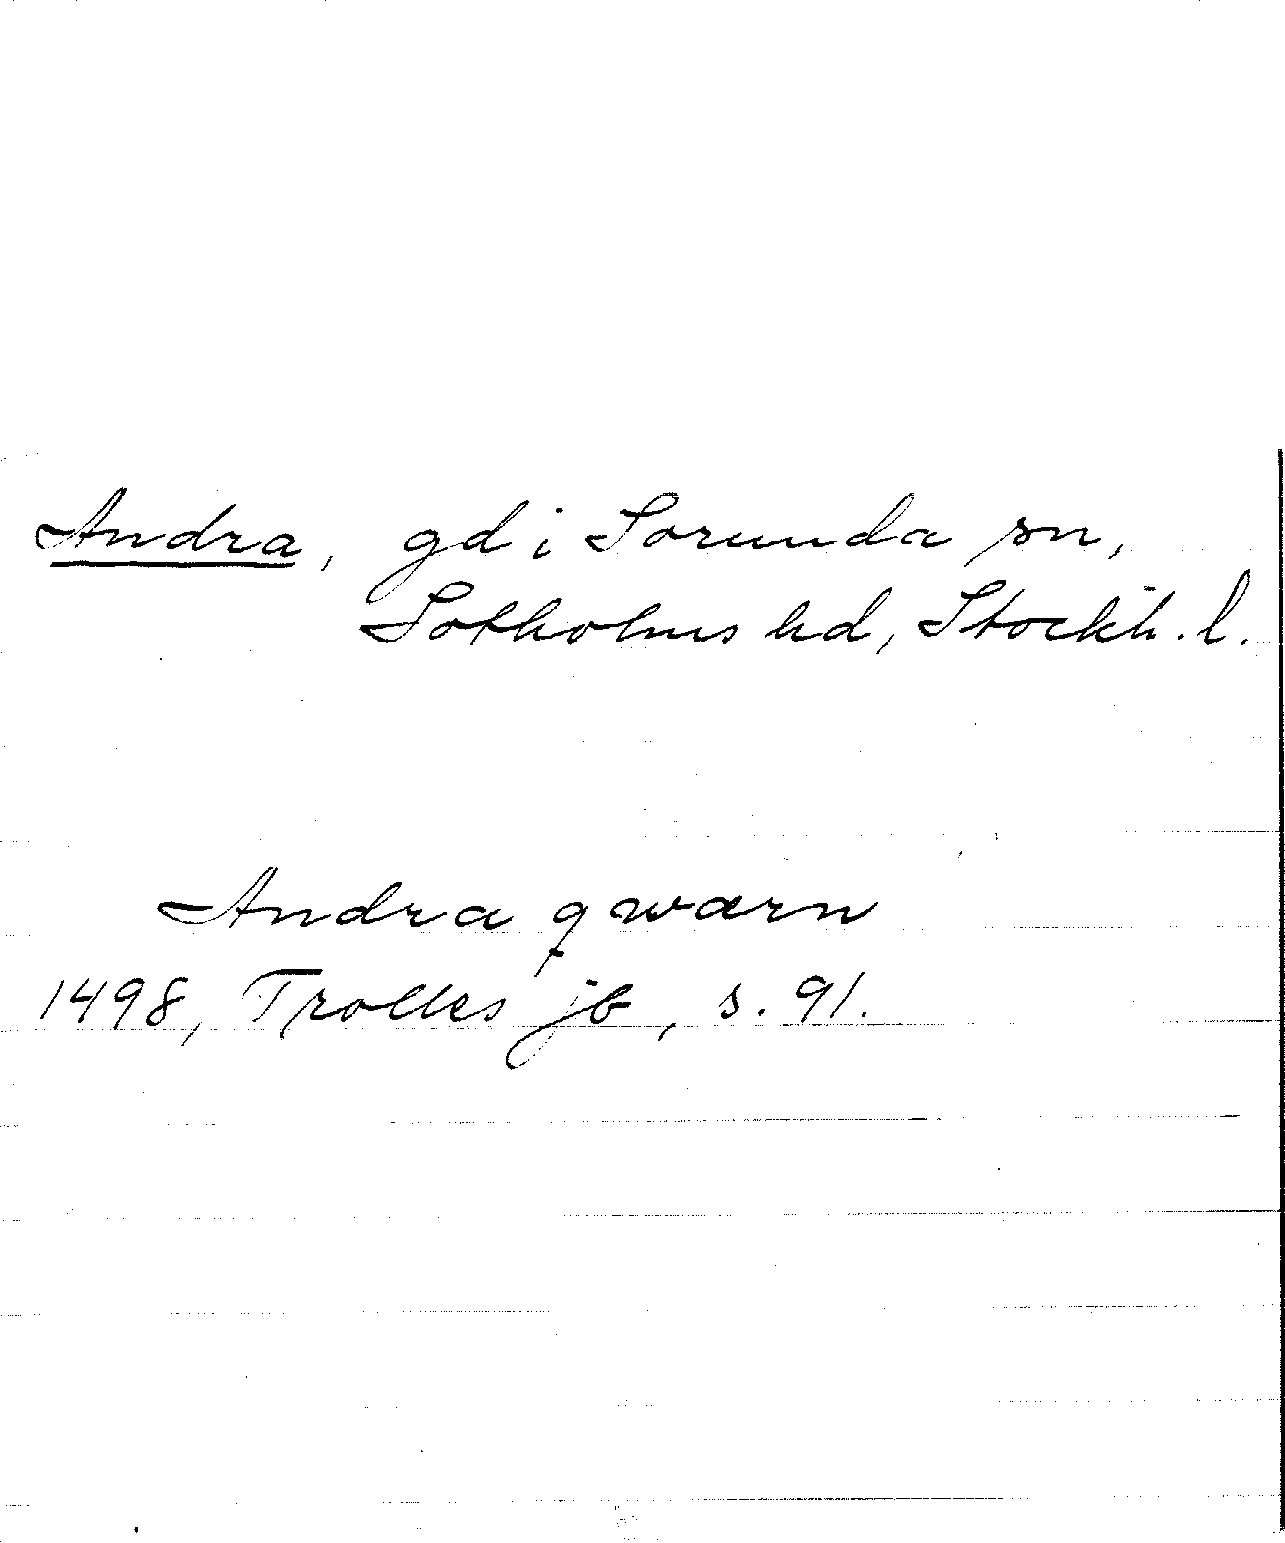 Andra, gd i Sorunda sn,
Sotholms hd, Stockh. l.
Andra qwarn
1498, Trolles jb, s. 91.